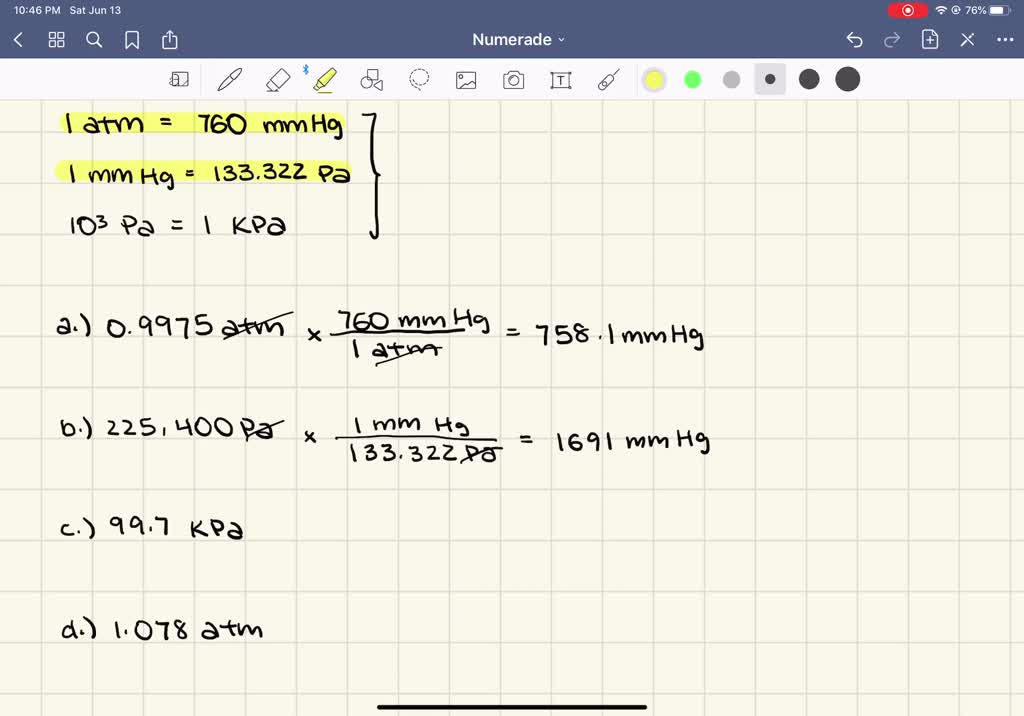 10:46 PM Sat Jun 13
76%
Numerade
1 atm = 760 mmHg
1 mmHg = 133.322 Pa
10³ Pa = 1 KPa
a.) 0.9975 atm × 760 mmHg / 1 atm = 758.1 mmHg
b.) 225,400 Pa × 1 mm Hg / 133.322 Pa = 1691 mmHg
c.) 99.7 KPa
d.) 1.078 atm